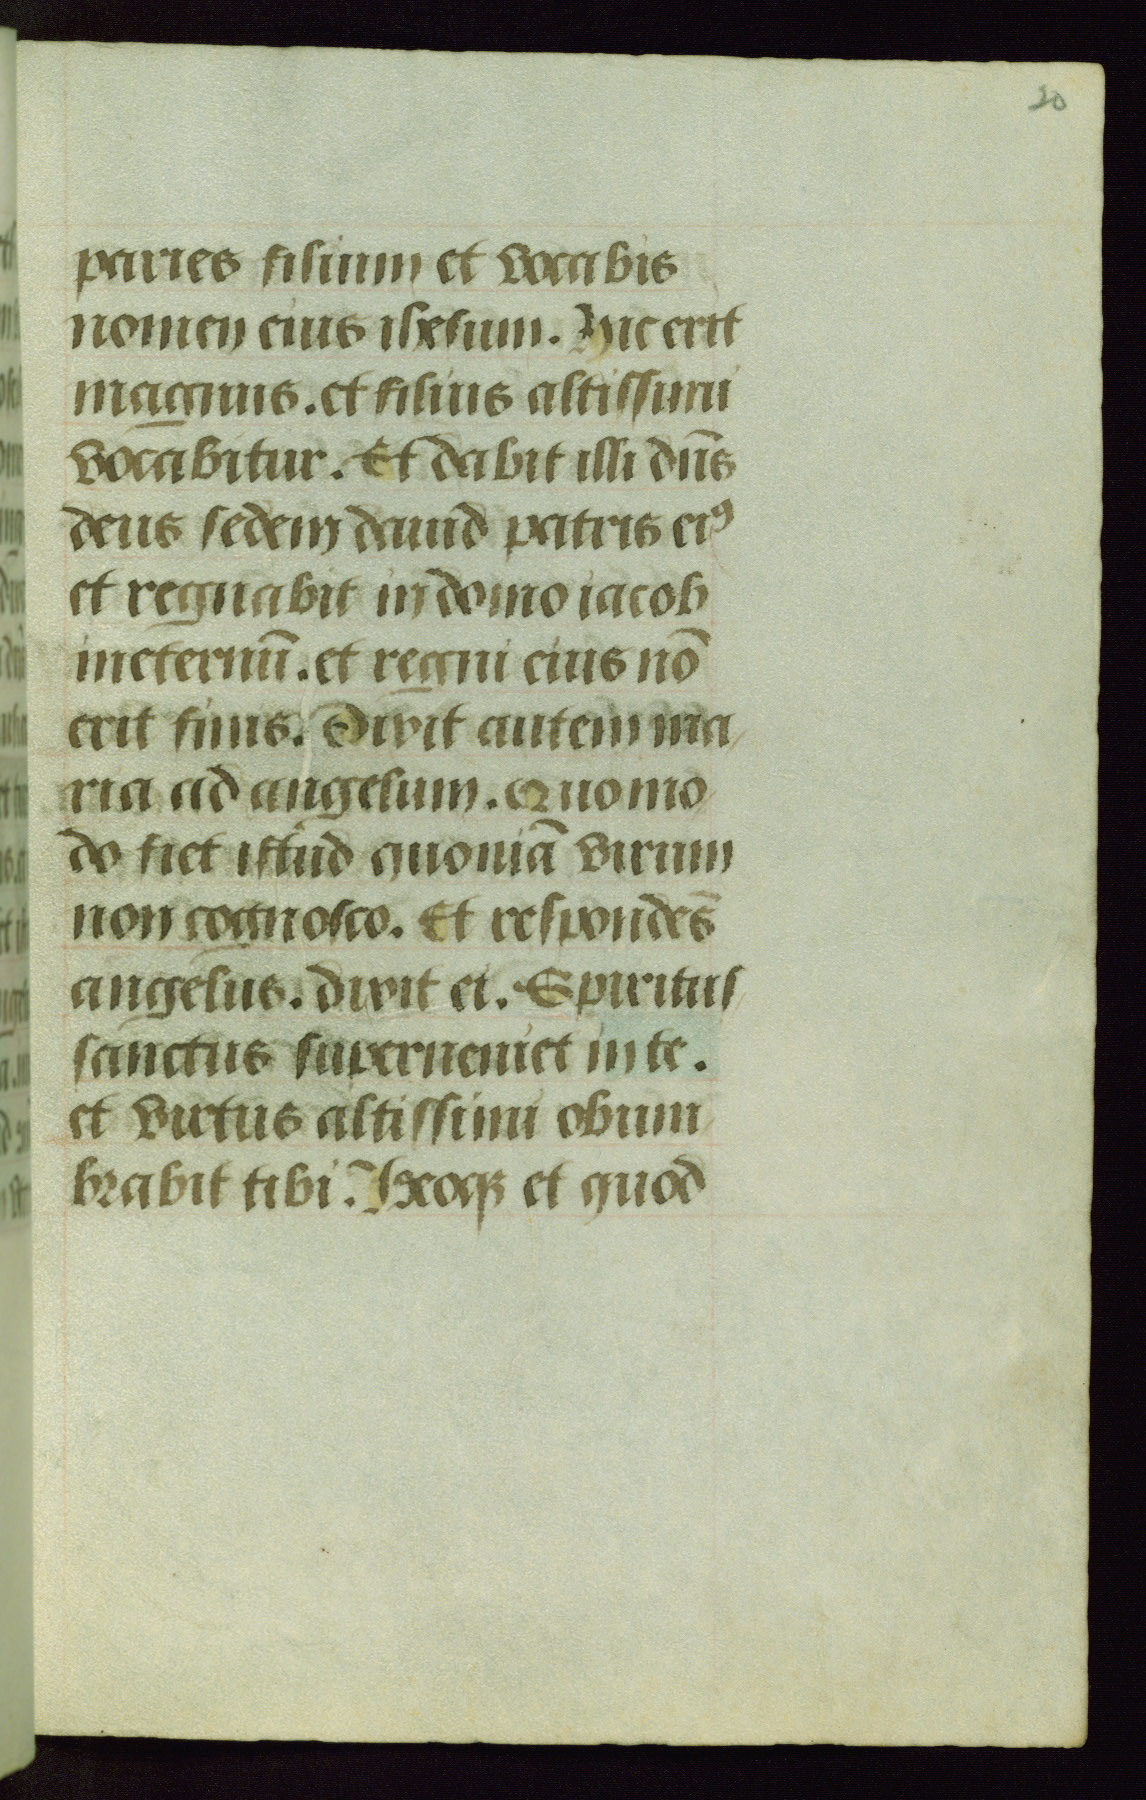 20
paries filium et vocabis
nomen eius ihesum. Hic erit
magnus. et filius altissimi
vocabitur. Et dabit illi dn̄s
deus sedem dauid patris eiꝰ
et regnabit in domo iacob
ineternū. et regni eius nō
erit finis. Dixit autem ma
ria ad angelum. Quomo
do fiet istud quoniā virum
non cognosco. Et respondēs
angelus. dixit ei. Spiritus
sanctus superueniet in te.
et virtus altissimi obum
brabit tibi. Ideoqꝫ et quod